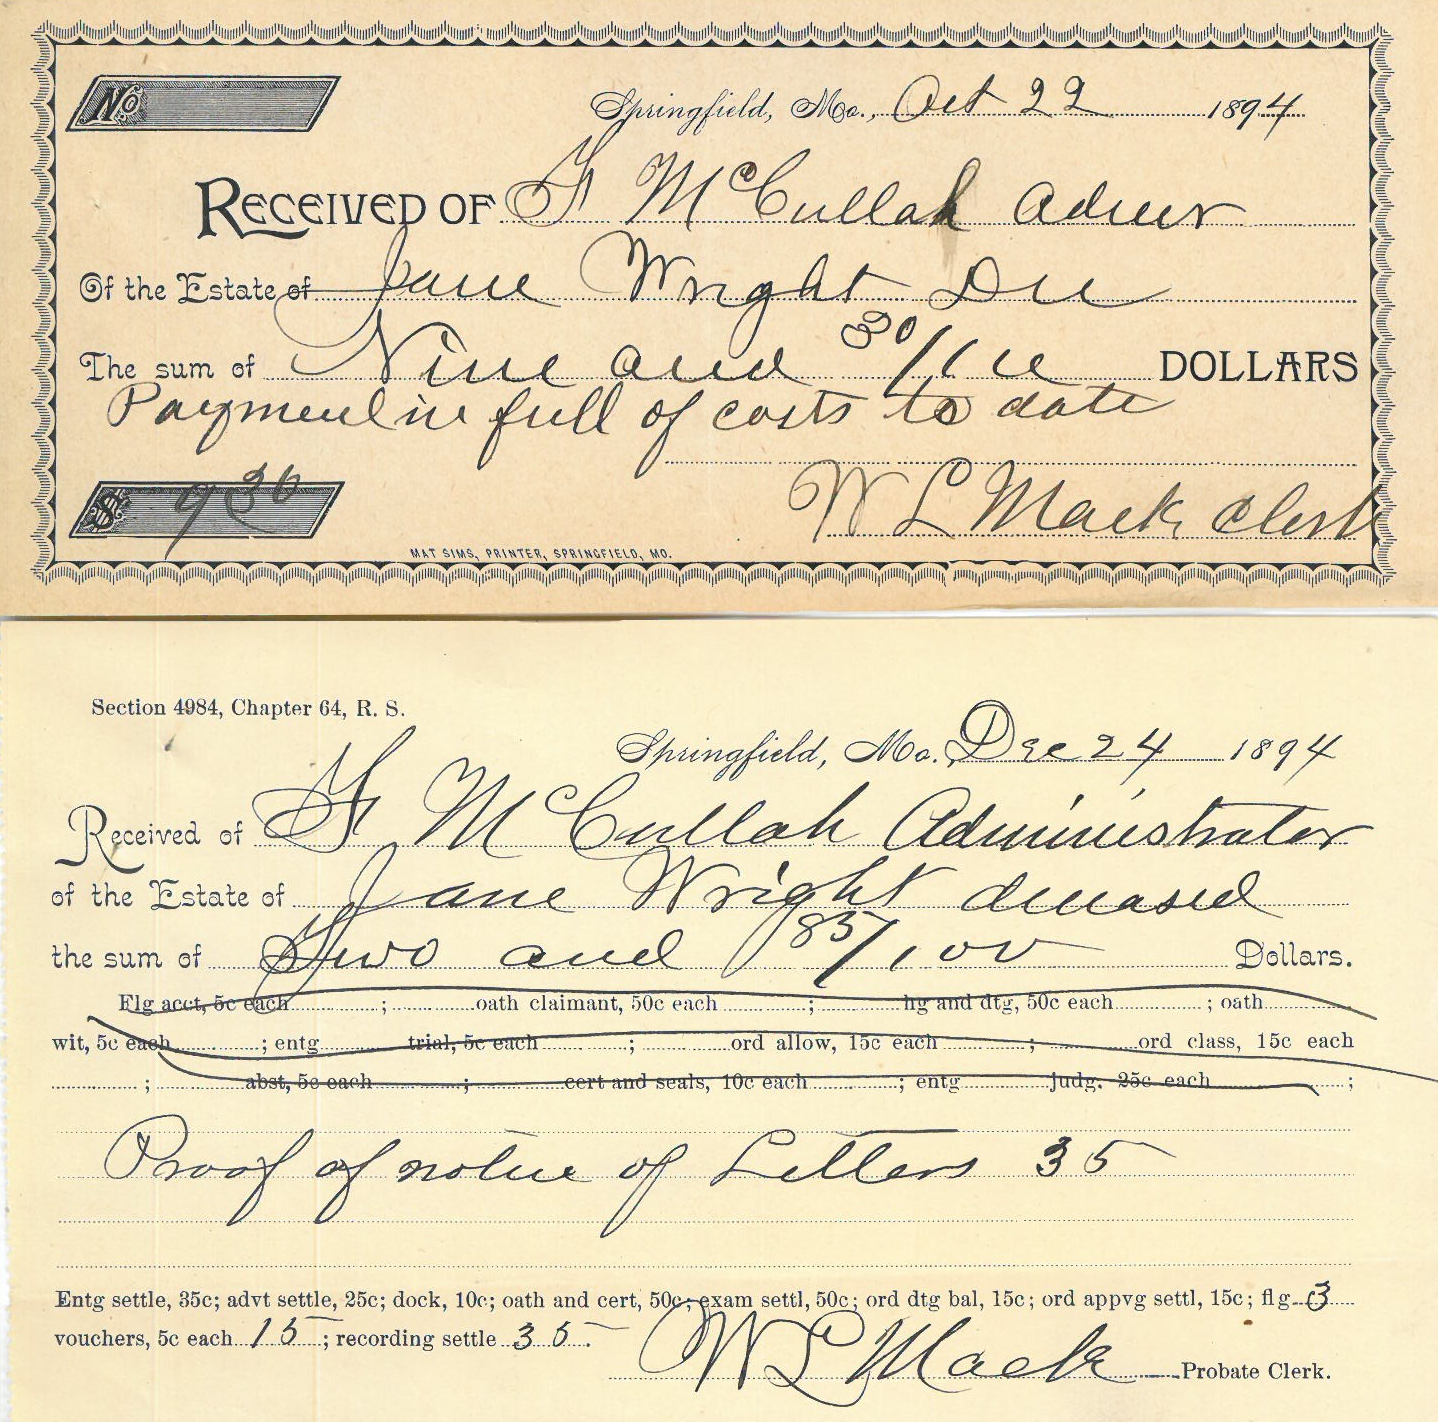 No
Springfield, Mo., Oct 22 1894
RECEIVED OF F McCullah Admr
Of the Estate of Jane Wright Dec
The sum of Nine and 30/100 DOLLARS
Payment in full of costs to date
$ 930
W L Mack, Clerk
MAT SIMS, PRINTER, SPRINGFIELD, MO.
Section 4984, Chapter 64, R. S.
Springfield, Mo. Dec 24 1894
Received of F McCullah Administrator
of the Estate of Jane Wright deceased
the sum of Two and 85/100 Dollars.
Flg acct, 5c each ; oath claimant, 50c each ; hg and dtg, 50c each ; oath
wit, 5c each ; entg trial, 5c each ; ord allow, 15c each ; ord class, 15c each
; abst, 5c each ; cert and seals, 10c each ; entg judg. 25c each ;
Proof of notice of Letters 35
Entg settle, 35c; advt settle, 25c; dock, 10c; oath and cert, 50c; exam settl, 50c; ord dtg bal, 15c; ord appvg settl, 15c; flg 3
vouchers, 5c each 15 ; recording settle 35.
W L Mack Probate Clerk.